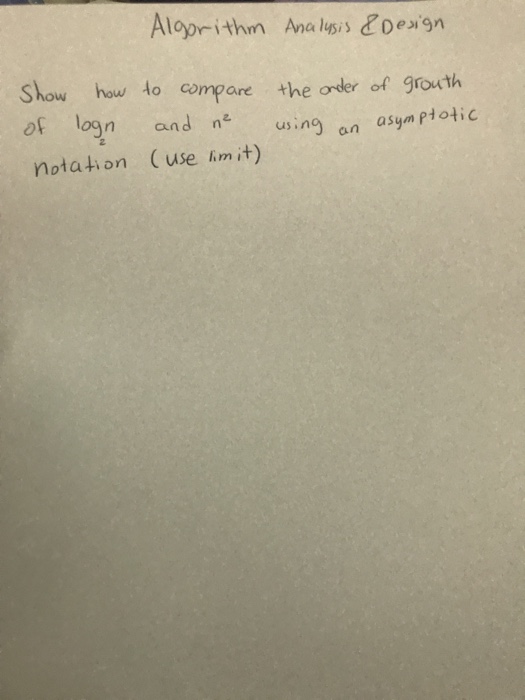 Algorithm Analysis & Design
Show how to compare the order of grouth
of log₂n and n² using an asymptotic
notation (use limit)